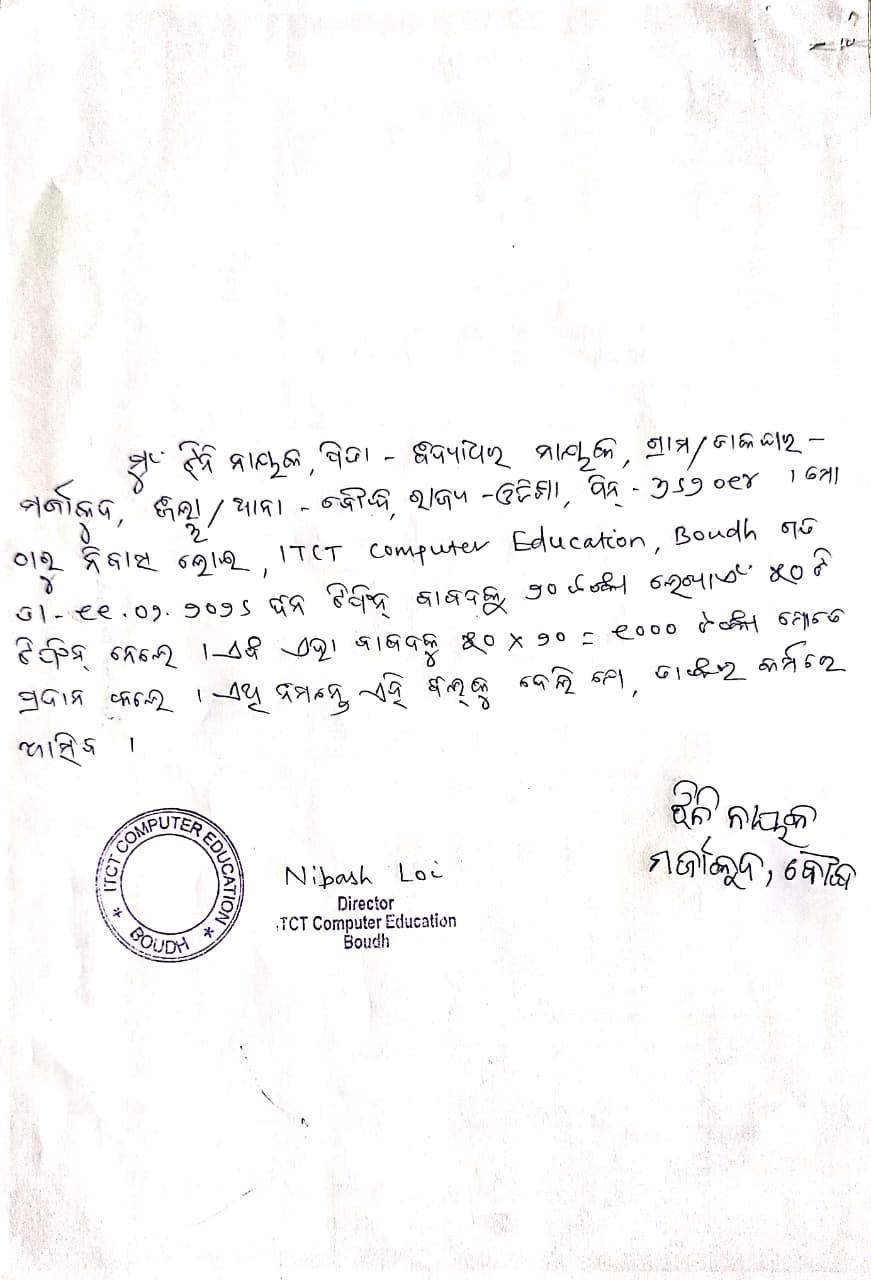 ମୁଂ ଝିନି ନାୟକ, ପିତା - ବିଦ୍ୟାଧର ନାୟକ, ଗ୍ରାମ/ଡାକଘର -
ମର୍ଜାକୁଦ, ଜିଲ୍ଲା/ଥାନା - ବୌଦ୍ଧ, ରାଜ୍ୟ - ଓଡିଶା, ପିନ୍ - ୭୬୨୦୧୪ । ମୋ
ଠାରୁ ନିବାସ ଲୋଇ, ITCT Computer Education, Boudh ଗତ
ତା - ୧୧.୦୨.୨୦୨୬ ଦିନ ଟିଫିନ୍ ବାବଦକୁ ୨୦ ଟଙ୍କା ଲେଖାଏଂ ୫୦ ଟି
ଟିଫିନ୍ ନେଲେ । ଏବଂ ଏହା ବାବଦକୁ ୫୦ x ୨୦ = ୧୦୦୦ ଟଙ୍କା ମୋତେ
ପ୍ରଦାନ କଲେ । ଏଥି ନିମନ୍ତେ ଏହି ବିଲ୍ କୁ ଦେଲି ଯେ, ତାଙ୍କର କର୍ମରେ
ଆସିବ ।
ଝିନି ନାୟକ
ମର୍ଜାକୁଦ, ବୌଦ୍ଧ
ITCT COMPUTER EDUCATION
* BOUDH *
Nibash Loi
Director
ITCT Computer Education
Boudh